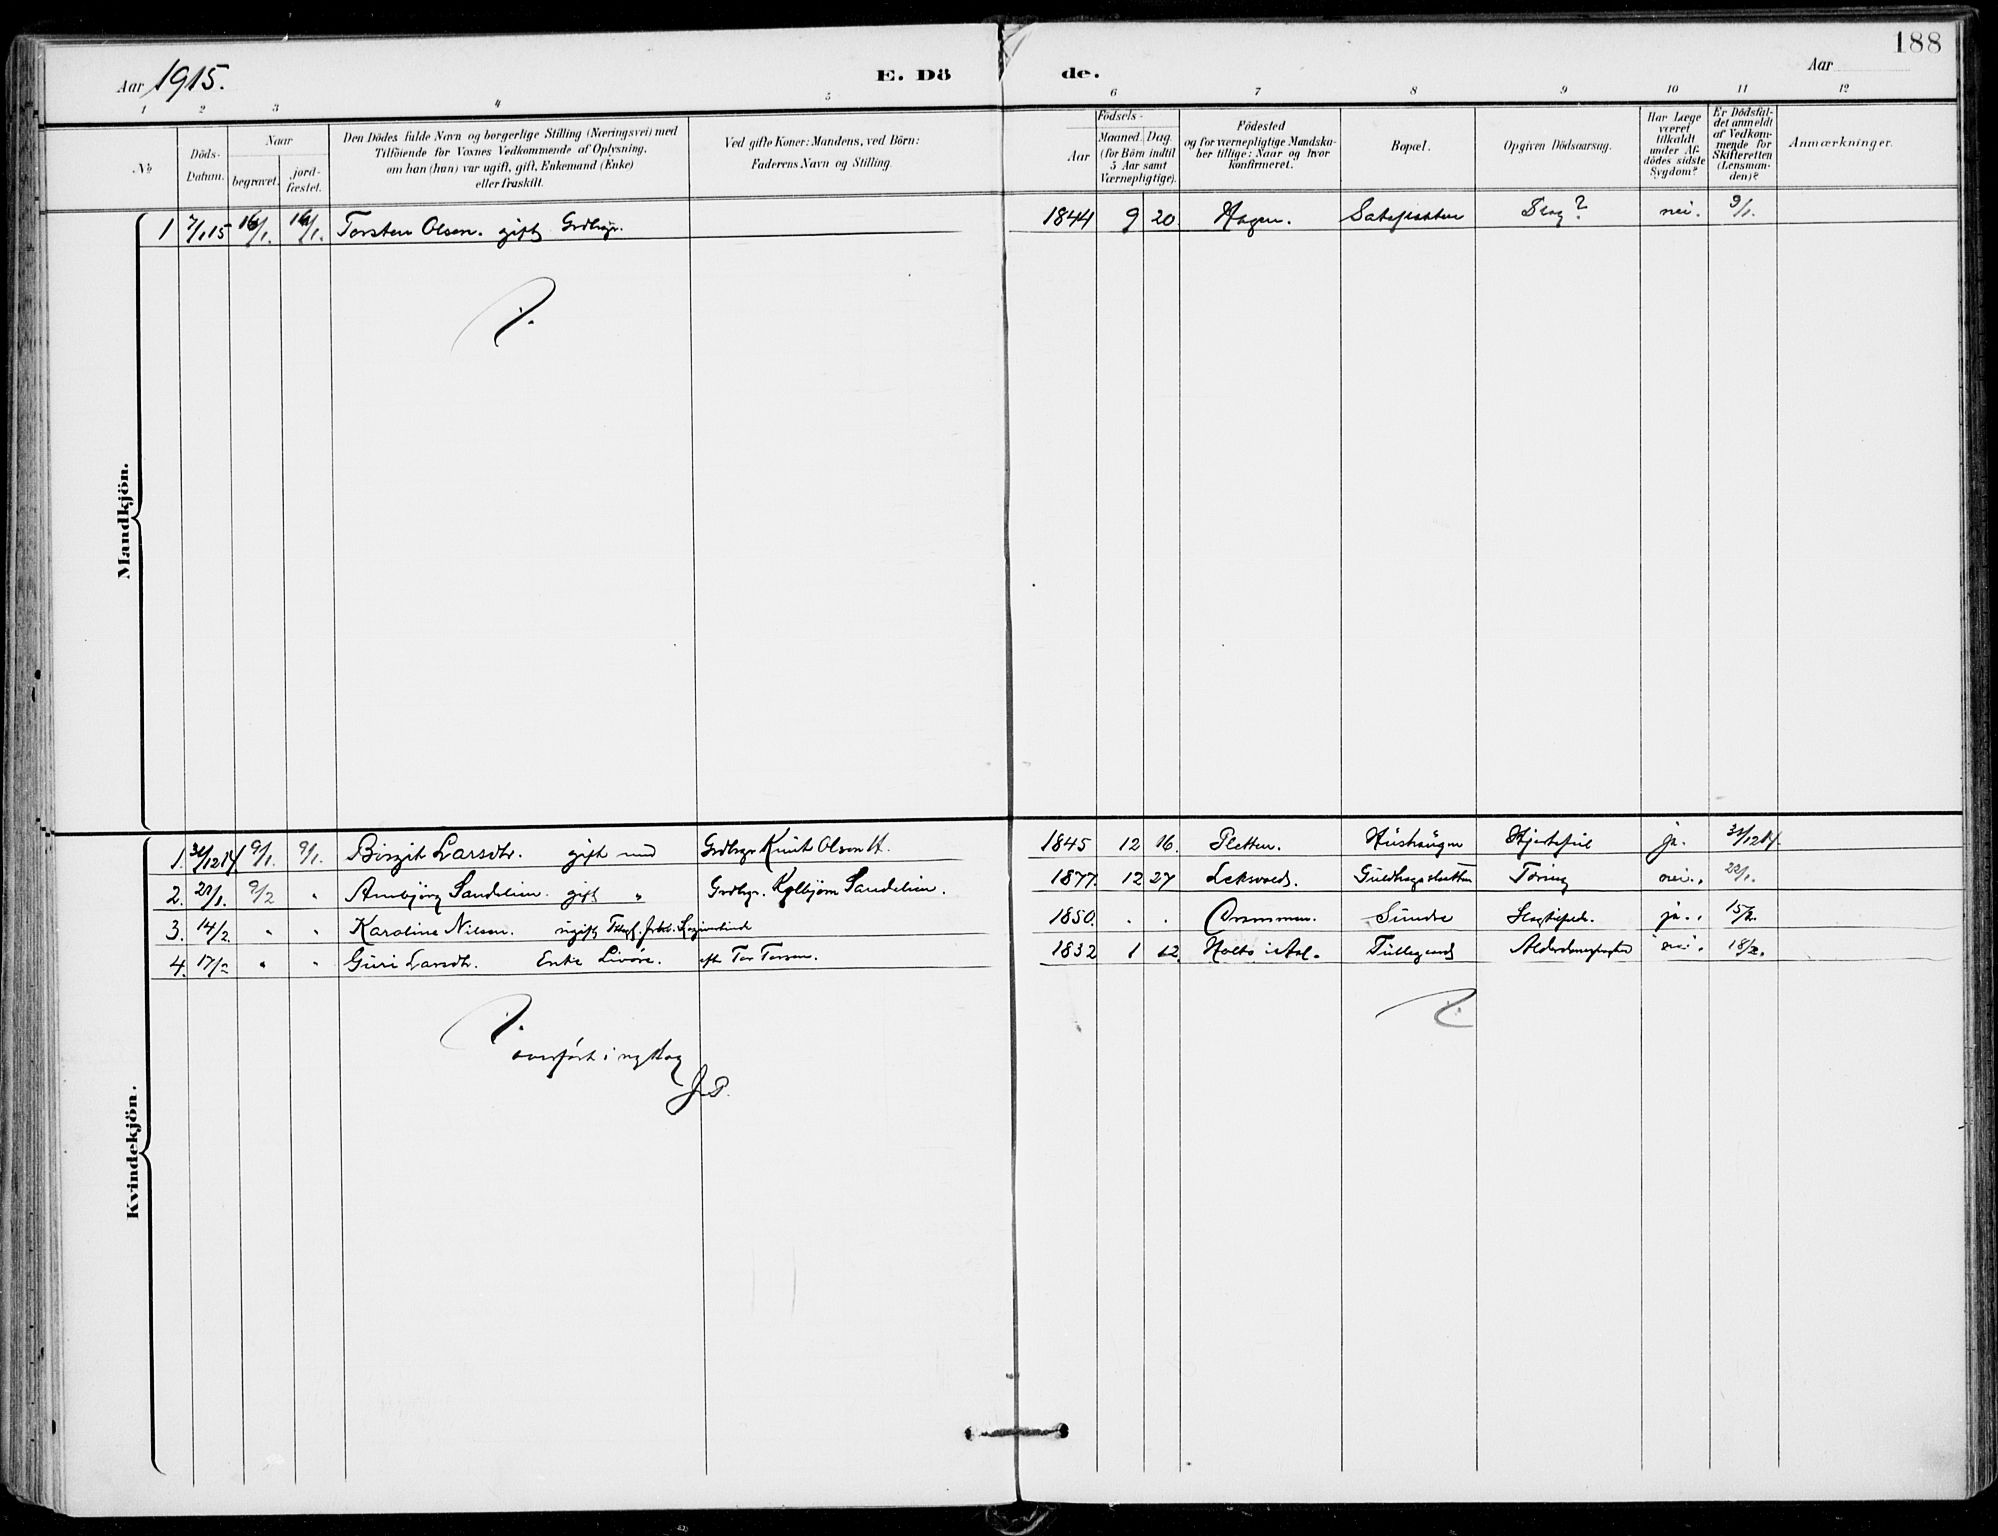 188
Aar 1915.
E. Dö de.
Aar
1 2 3 4 5 6 7 8 9 10 11 12
No
Döds-
Datum.
Naar
begravet. jord-
fæstet.
Den Dödes fulde Navn og borgerlige Stilling (Næringsvei) med
Tilföiende for Voxnes Vedkommende af Oplysning,
om han (hun) var ugift, gift, Enkemand (Enke)
eller fraskilt.
Ved gifte Koner: Mandens, ved Börn:
Faderens Navn og Stilling.
Födsels-
Aar
Maaned. Dag.
(for Börn indtil
5 Aar samt
Værnepligtige).
Födested
og for værnepligtige Mandska-
ber tillige: Naar og hvor
konfirmeret.
Bopæl.
Opgiven Dödsaarsag.
Har Læge
været
tilkaldt
under Af-
dödes sidste
Sygdom?
Er Dödsfal-
det anmeldt
af Vedkom-
mende for
Skifteretten
(Lensman-
den)?
Anmærkninger.
Mandkjön.
1 7/1 15 16/1. 16/1. Torsten Olsen. gift Grdbgr. 1844 9 20. Hagen. Slag? nei. 9/1.
Kvindekjön.
1. 31/12 14. 9/1. 9/1. Birgit Larsdtr. gift med Grdbgr Knut Olsen H. 1845 12 16. Pletten. Hushaugen Hjertefeil ja. 31/12 14.
2. 20/1. 9/2 " Arnbjörg Sandelien. gift " Grdbgr. Kolbjörn Sandelien. 1877. 12 27 Leksvold. Tæring nei. 22/1.
3. 14/2. " " Karoline Nilsen. ugift 1850. . . Drammen. Sundre ja. 15/2.
4. 17/2 " " Guri Larsdtr. Enke Livöre. eft Tor Torsen. 1832 1 12. Holto i Aal. Tuftegard nei. 18/2.
overfört i ny Bog
J.P.